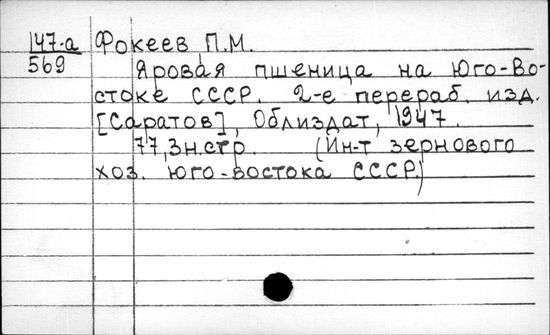 147-а Фокеев П.М.
569 Яровая пшеница на Юго-Во-
стоке СССР. 2-е перераб. изд.
[Саратов], Облиздат, 1947.
77,3н.стр. (Ин-т зернового
хоз. юго-востока СССР.)